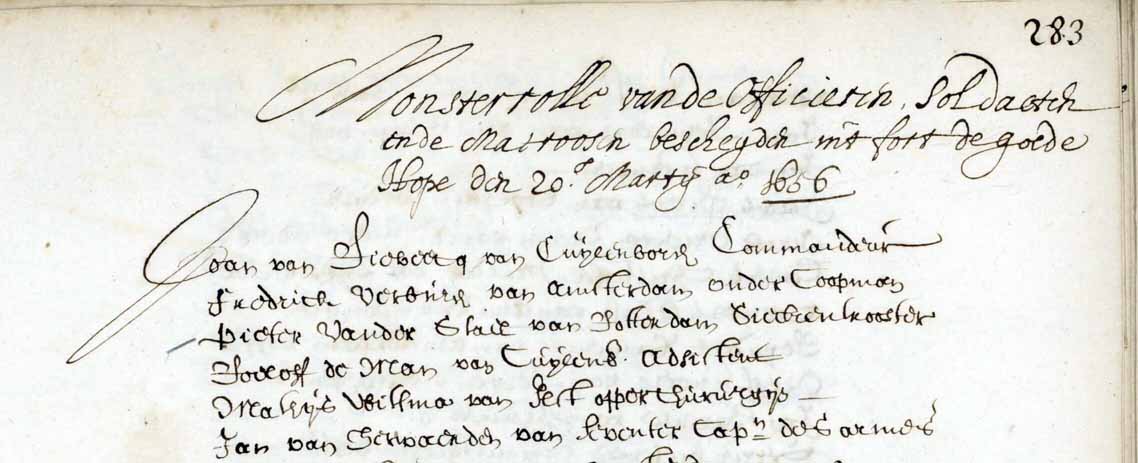 283
Monsterrolle vande Officieren, Soldaeten
ende Matroosen bescheyden int fort de goede
Hope den 20.e Marty ao. 1656
Joan van Riebeecq van Cuÿlenborch Commandeur
Fredrick Verburch van Amsterdam onder Coopman
Pieter Vander Stael van Rotterdam Sieckentrooster
Roeloff de Man van Cuÿlenb. adsistent
Mathÿs Willma van opperchirurgÿs
Jan van Herwaerden van Deventer Capn. des armes